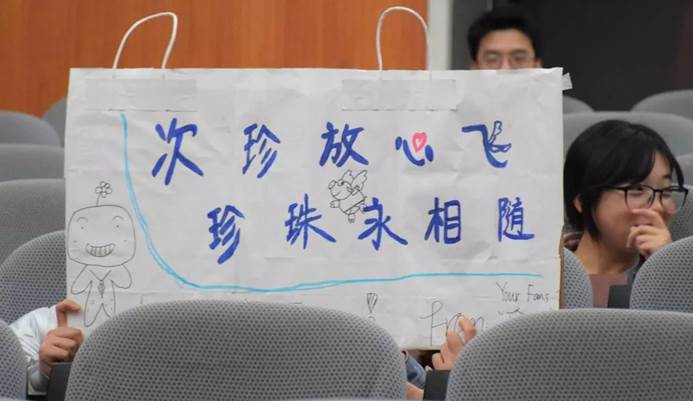 次珍放心飞
珍珠永相随
Your Fans